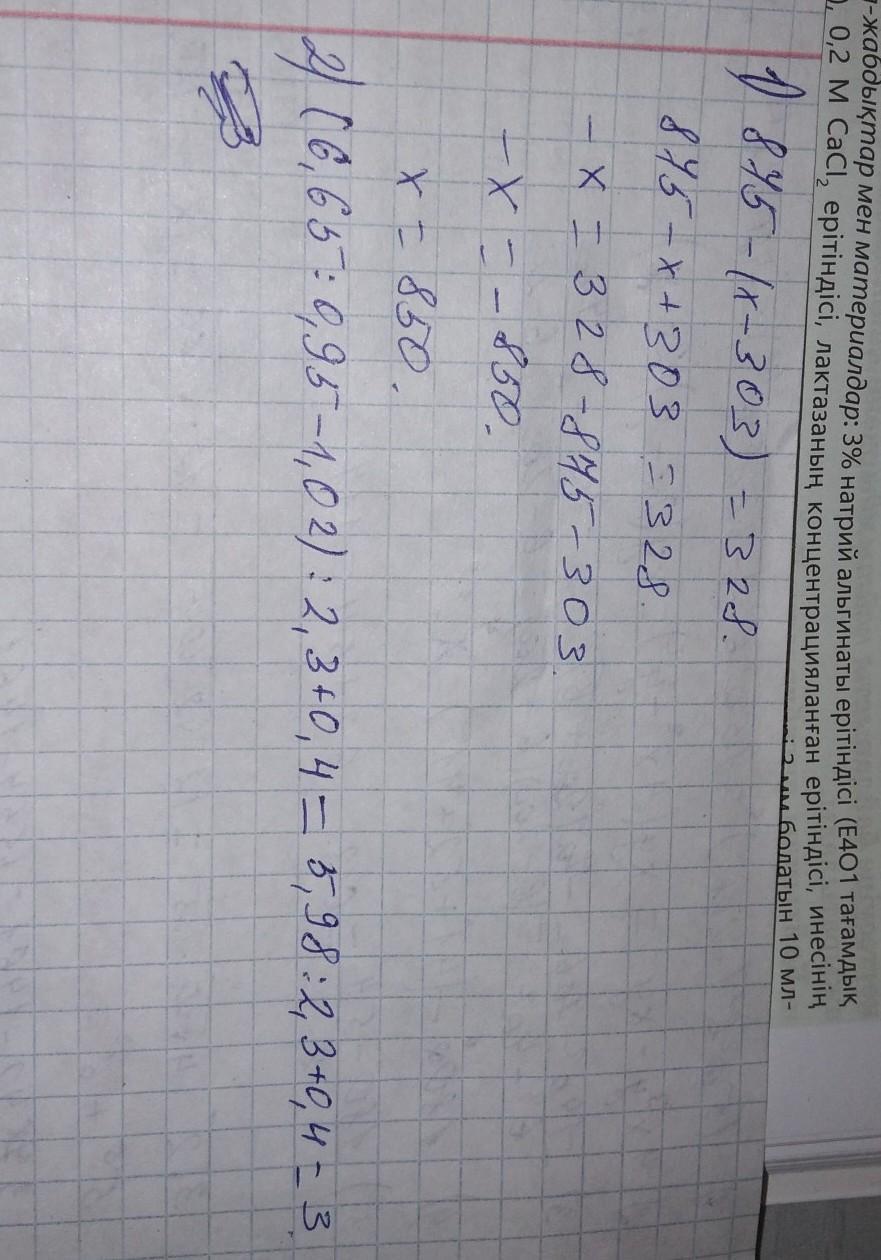 -жабдықтар мен материалдар: 3% натрий альгинаты ерітіндісі (Е401 тағамдық
), 0,2 М CaCl₂ ерітіндісі, лактазаның концентрацияланған ерітіндісі, инесінің
2 мм болатын 10 мл-
1) 875 - (x - 303) = 328.
875 - x + 303 = 328.
- x = 328 - 875 - 303.
- x = - 850.
x = 850.
2) (6,65 : 0,95 - 1,02) : 2,3 + 0,4 = 5,98 : 2,3 + 0,4 = 3